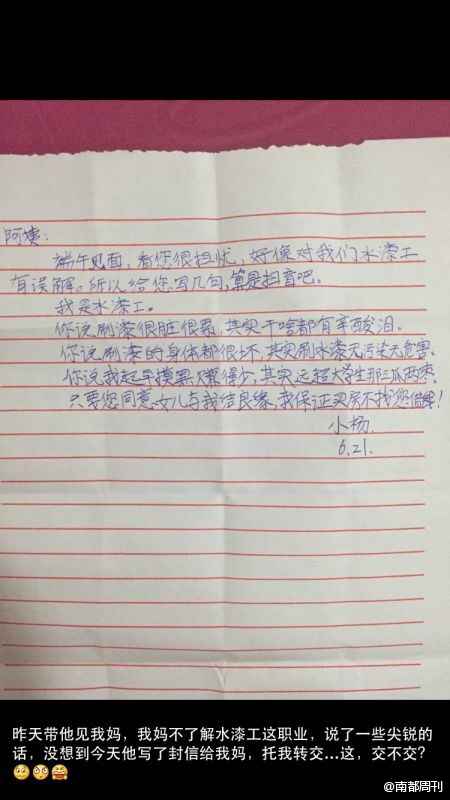 阿姨：
端午见面，看您很担忧，好像对我们水漆工
有误解。所以给您写几句，算是扫盲吧。
我是水漆工。
你说刷漆很脏很累，其实干啥都有辛酸泪。
你说刷漆的身体都很坏，其实刷水漆无污染无危害。
你说我起早摸黑赚得少，其实远超大学生那三瓜两枣。
只要您同意女儿与我结良缘，我保证买房不找您借钱！
小杨
6.21.
昨天带他见我妈，我妈不了解水漆工这职业，说了一些尖锐的
话，没想到今天他写了封信给我妈，托我转交...这，交不交？
@南都周刊